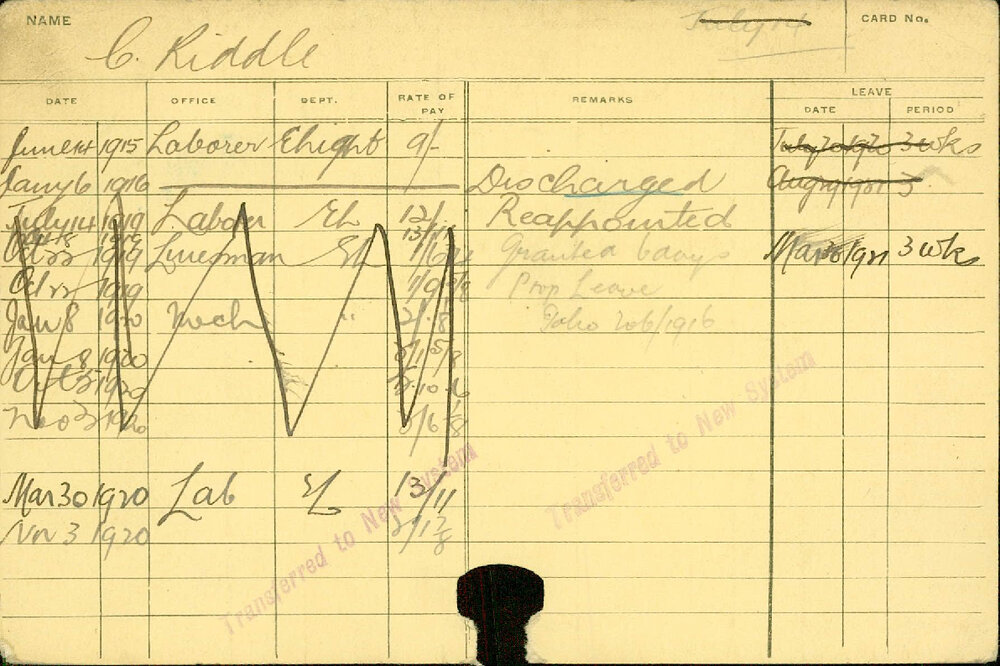 NAME
C. Riddle
July 14
CARD No.
DATE OFFICE DEPT. RATE OF PAY REMARKS LEAVE
DATE PERIOD
June 14 1915 Laborer Elight 9/- July 20 1920 3 wks
Jany 6 1916 Discharged Aug 1921 3
July 14 1919 Labor EL 12/ Reappointed
13/11
Oct 22 1919 Lineman EL Granted 6 days Mar 30 1921 3 wks
Oct 22 1919 Prop Leave
Jan 8 1920 Mech " Folio 206/1916
Jan 8 1920
Oct 1920
Nov 3 1920
Mar 30 1920 Lab EL 13/11
Nov 3 1920
Transferred to New System
Transferred to New System